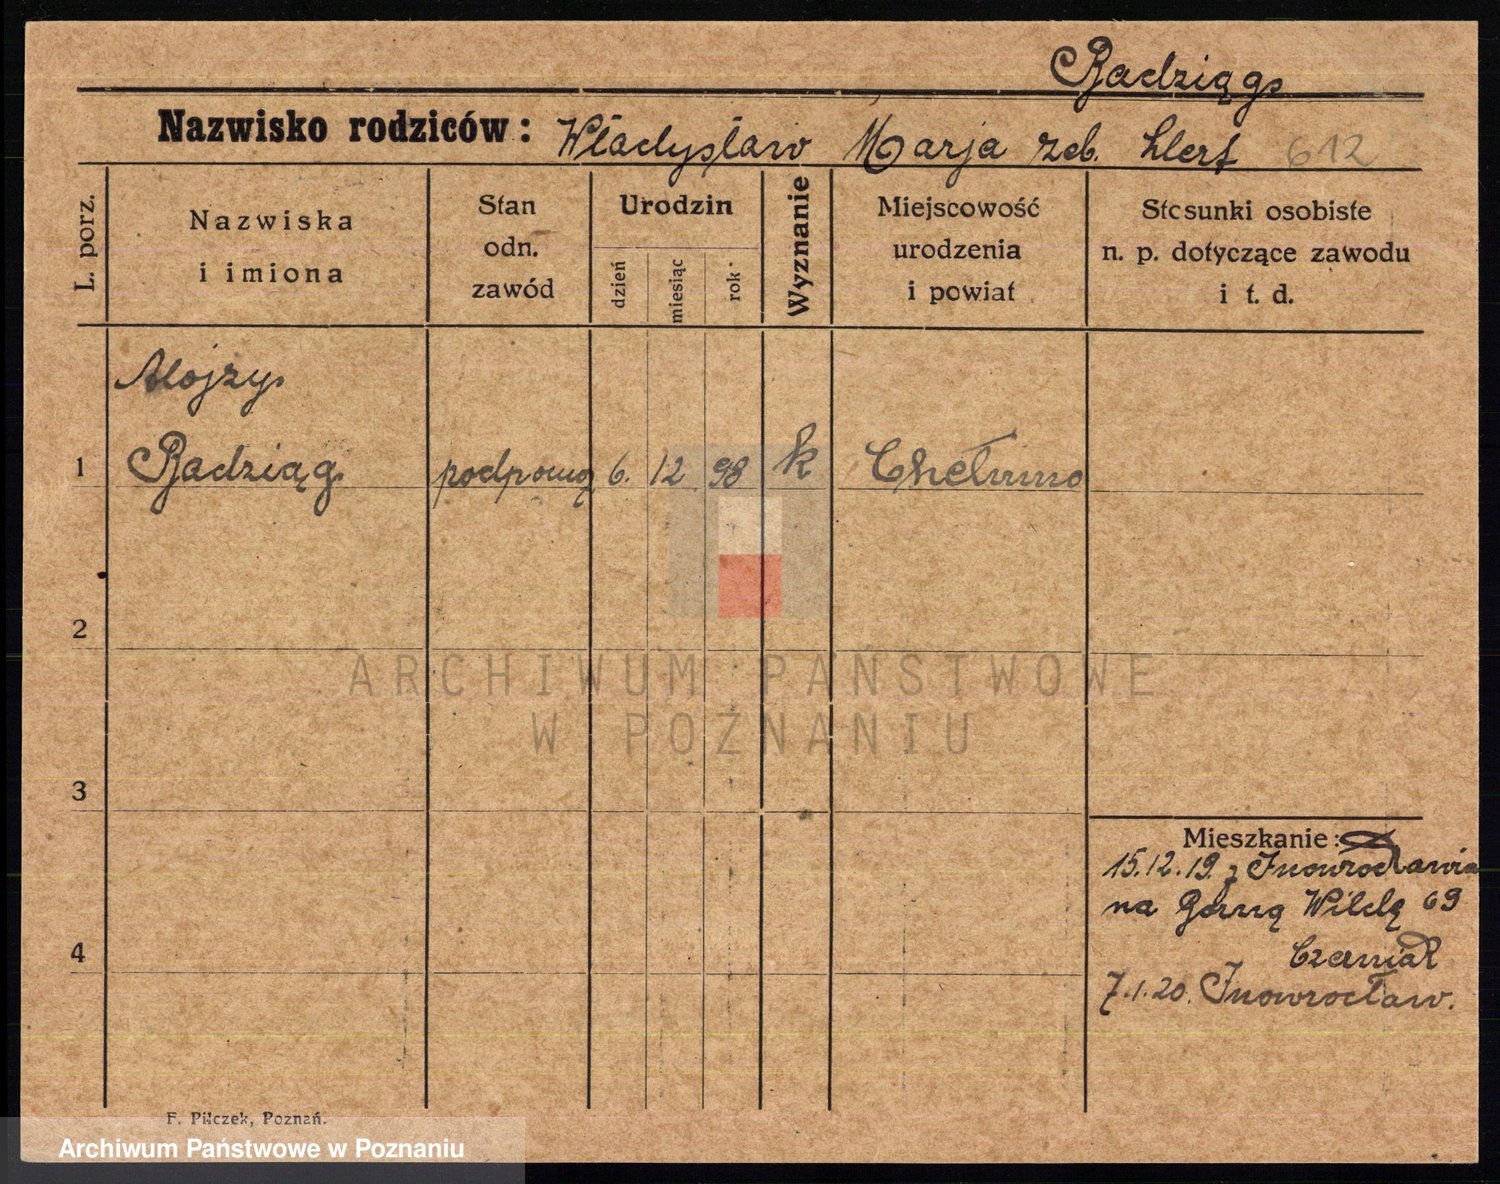 Radziąg
Nazwisko rodziców: Władysław Marja 612
L. porz.
Nazwiska
i imiona
Stan
odn.
zawód
Urodzin
dzień
miesiąc
rok
Wyznanie
Miejscowość
urodzenia
i powiat
Stosunki osobiste
n. p. dotyczące zawodu
i t. d.
Alojzy
1 Radziąg podpomoq 6. 12 98 k Chełmno
2
3
4
Mieszkanie:
15.12.19 z Inowrocławia
na Górną Wildę 69
Czerniak
7.1.20. Inowrocław.
F. Pilczek, Poznań.
ARCHIWUM PAŃSTWOWE
W POZNANIU
Archiwum Państwowe w Poznaniu